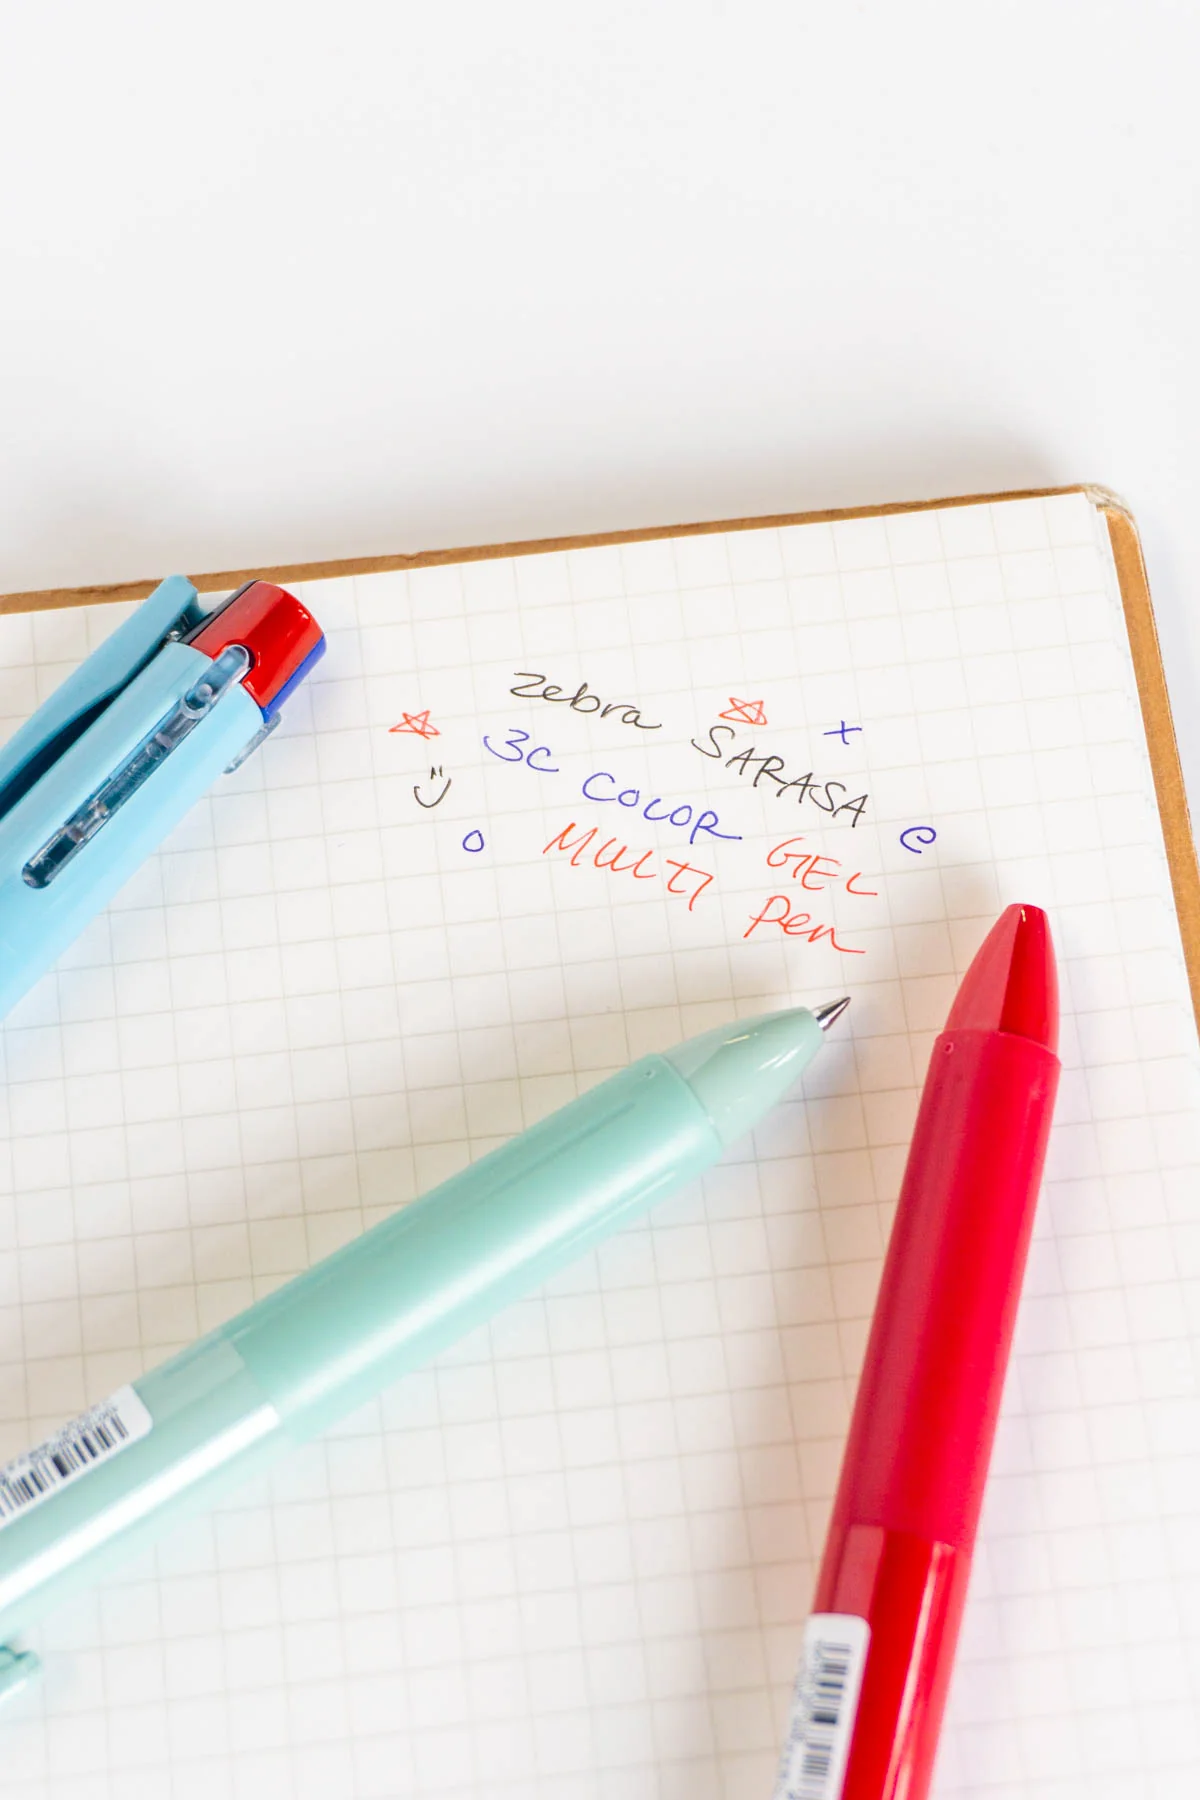 zebra SARASA
3C COLOR GEL
MULTI Pen